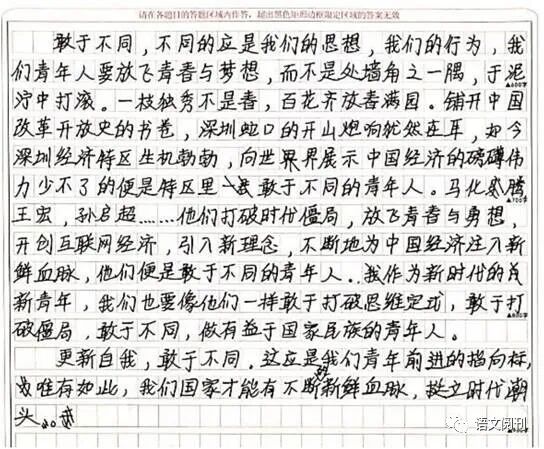 请在各题目的答题区域内作答，超出黑色矩形边框限定区域的答案无效
敢于不同，不同的应是我们的思想，我们的行为，我
们青年人要放飞青春与梦想，而不是处墙角之一隅，于泥
泞中打滚。一枝独秀不是春，百花齐放春满园。铺开中国
▲600字
改革开放史的书卷，深圳蛇口的开山炮响犹然在耳，如今
深圳经济特区生机勃勃，向世界展示中国经济的磅礴伟
力少不了的便是特区里敢于不同的青年人。马化腾
▲700字
王宏，孙启超……他们打破时代僵局，放飞青春与勇想，
开创互联网经济，引入新理念，不断地为中国经济注入新
鲜血脉，他们便是敢于不同的青年人。我作为新时代的
新青年，我们也要像他们一样敢于打破思维定式，敢于打
▲800字
破僵局，敢于不同，做有益于国家民族的青年人。
更新自我，敢于不同。这应是我们青年前进的指向标，
唯有如此，我们国家才能有不断的新鲜血脉，挺立时代潮
头。
语文阅刊